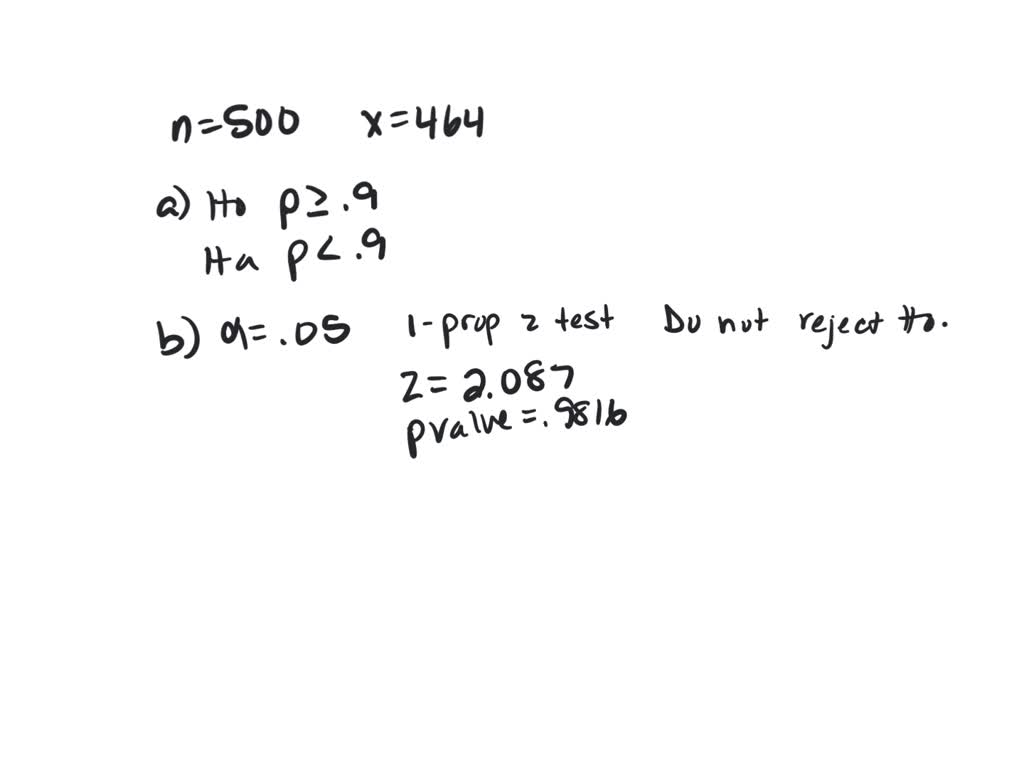 n=500 x=464
a) Ho p≥.9
Ha p<.9
b) α=.05 1-prop z test Do not reject Ho.
z=2.087
pvalue=.9816